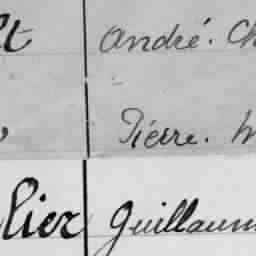 lt André. Ch
Pierre. M
lier Guillaum